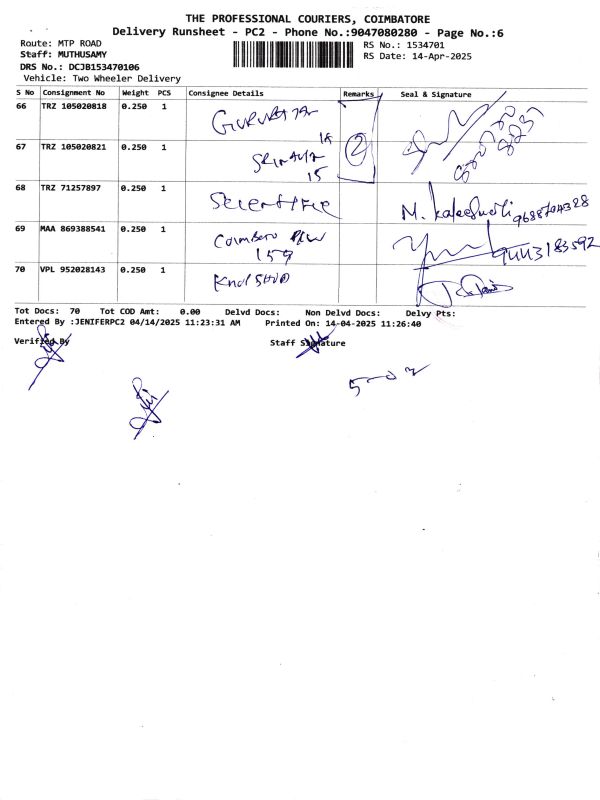 THE PROFESSIONAL COURIERS, COIMBATORE
Delivery Runsheet - PC2 - Phone No.:9047080280 - Page No.:6
Route: MTP ROAD
Staff: MUTHUSAMY
RS No.: 1534701
RS Date: 14-Apr-2025
DRS No.: DCJB153470106
Vehicle: Two Wheeler Delivery
S No Consignment No Weight PCS Consignee Details Remarks Seal & Signature
66 TRZ 105020818 0.250 1
67 TRZ 105020821 0.250 1 2
15
68 TRZ 71257897 0.250 1 Scientific M. 9688704328
69 MAA 869388541 0.250 1 9443183592
159
70 VPL 952028143 0.250 1
Tot Docs: 70 Tot COD Amt: 0.00 Delvd Docs: Non Delvd Docs: Delvy Pts:
Entered By :JENIFERPC2 04/14/2025 11:23:31 AM Printed On: 14-04-2025 11:26:40
Verified By Staff Signature